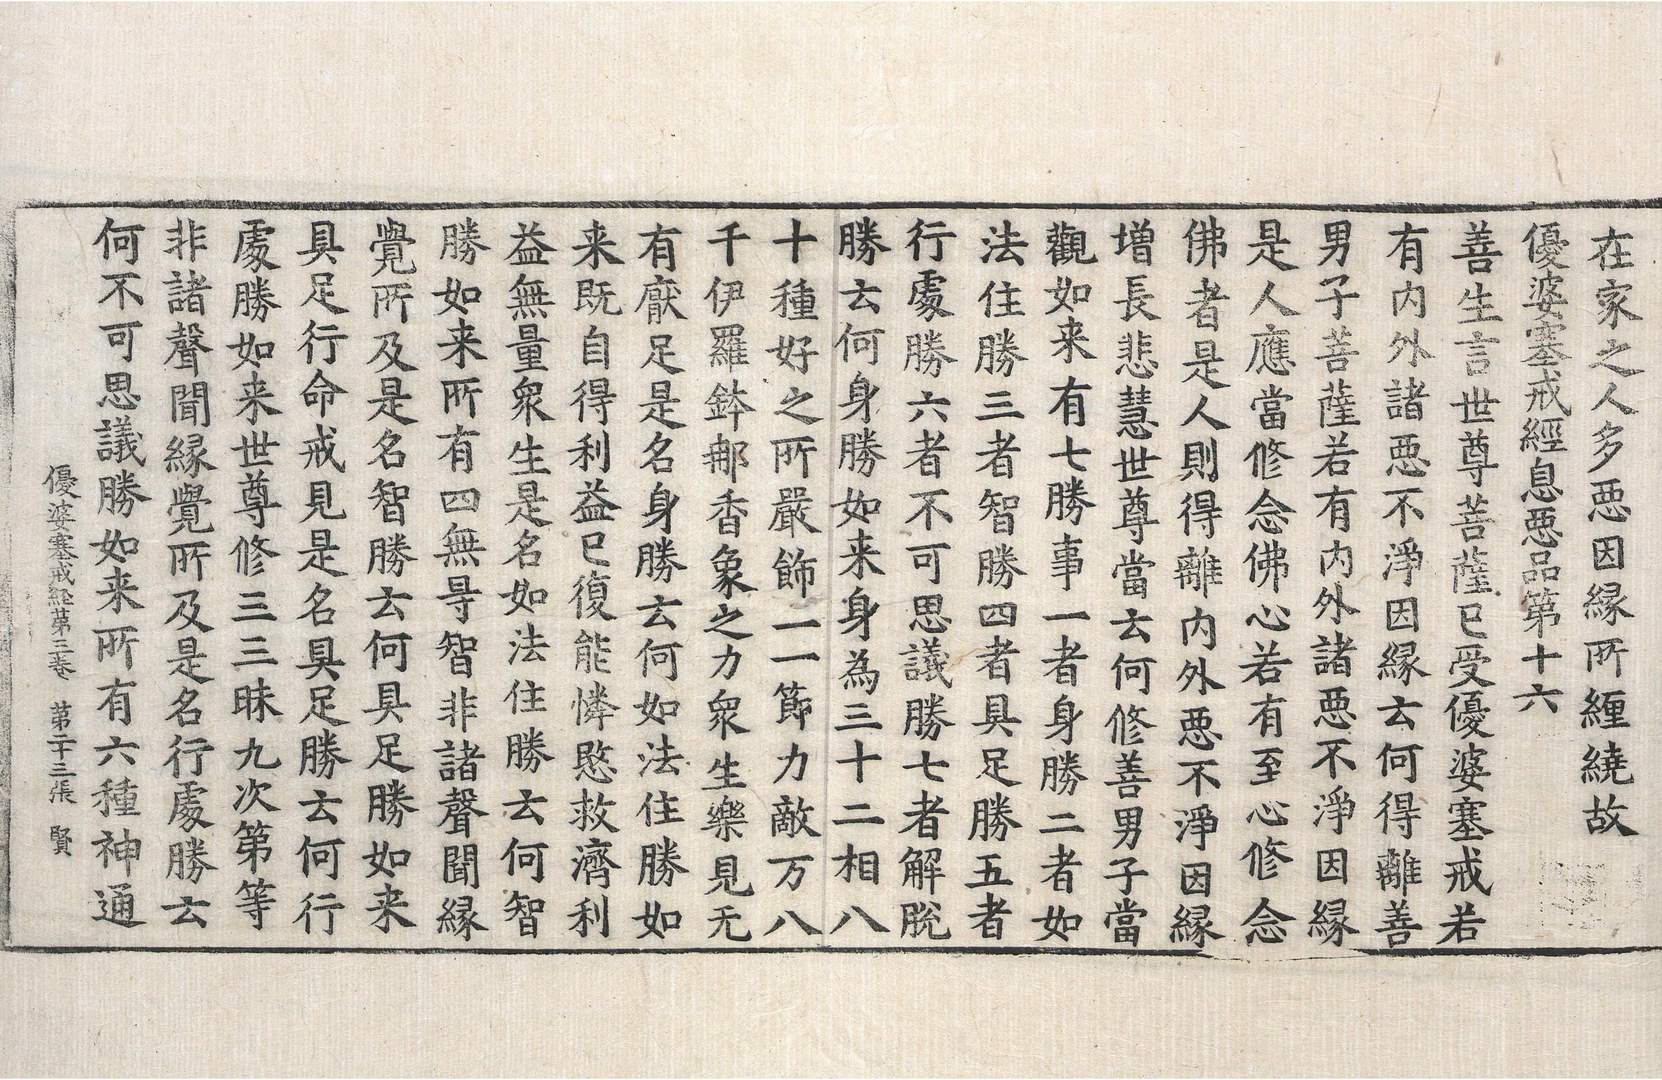 在家之人多惡因縁所纏繞故
優婆塞戒經息惡品第十六
善生言世尊菩薩已受優婆塞戒若
有内外諸惡不淨因縁云何得離善
男子菩薩若有内外諸惡不淨因縁
是人應當修念佛心若有至心修念
佛者是人則得離内外惡不淨因縁
增長悲慧世尊當云何修善男子當
觀如来有七勝事一者身勝二者如
法住勝三者智勝四者具足勝五者
行處勝六者不可思議勝七者解脫
勝云何身勝如来身為三十二相八
十種好之所嚴飾一一節力敵万八
千伊羅鉢那香象之力衆生樂見无
有猒足是名身勝云何如法住勝如
来既自得利益已復能憐愍救濟利
益無量衆生是名如法住勝云何智
勝如来所有四無㝵智非諸聲聞縁
覺所及是名智勝云何具足勝如来
具足行命戒見是名具足勝云何行
處勝如来世尊修三三昧九次第等
非諸聲聞縁覺所及是名行處勝云
何不可思議勝如来所有六種神通
優婆塞戒経苐三卷 苐二十三張 賢